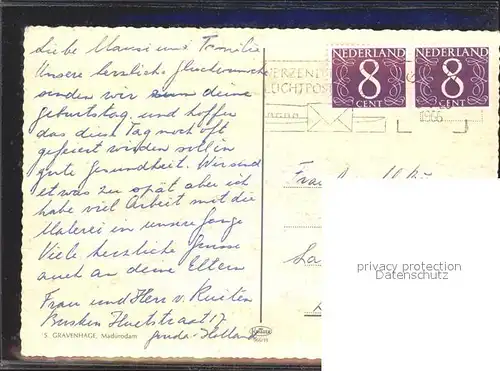 Liebe Mausi und Familie
Unsere herzliche Glückwunsche
senden wir zum deine
Geburtstag. und hoffen
das dies Tag noch oft
gefeiert wirden soll in
gute Gesundheit. Wir sind
etwas zu spät aber ich
habe viel Arbeit mit die
Malerei in unsere Gange
Viele herzliche Grusse
auch an deine Eltern
Frau und Herr v. Rieten
Busken Huetstraat 17
Gouda - Holland
'S GRAVENHAGE, Madurodam
NEDERLAND
8
CENT
NEDERLAND
8
CENT
VERZEND
LUCHTPOS
1966
Frau
privacy protection
Datenschutz